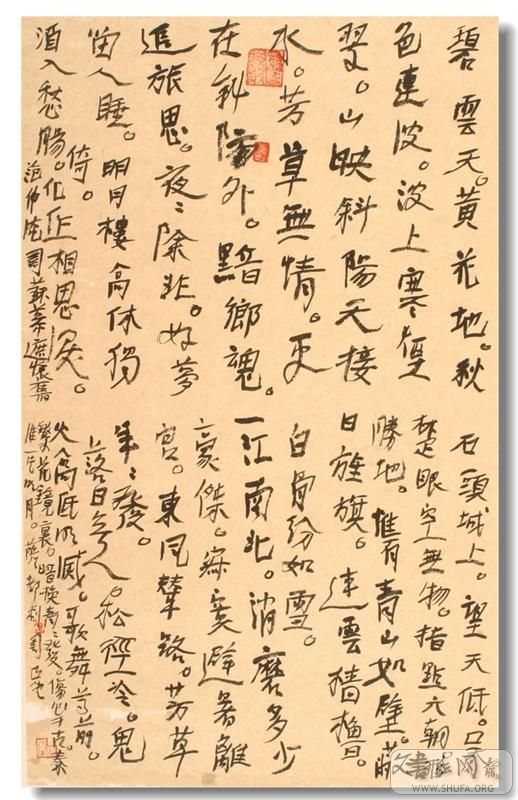 碧雲天。黄花地。秋
色連波。波上寒煙
翠。山映斜陽天接
水。芳草無情。更
在斜陽外。黯鄉魂。
追旅思。夜〻除非。好夢
留人睡。明月樓高休獨
倚。
酒入愁腸。化作相思淚。
范仲淹詞蘇幕遮懷舊
石頭城上。望天低。吳
楚眼空無物。指點六朝
勝地。惟有青山如壁。蔽
日旌旗。連雲檣櫓。
白骨紛如雪。
一江南北。消磨多少
豪傑。寂寞避暑離
宮。東風輦路。芳草
年〻發。
落日無人。松徑冷。鬼
火高低明滅。歌舞尊前。
繁華鏡裏。暗換青〻髮。傷心千古。秦
淮一片明月。薩都剌詞
WWW.SHUFA.ORG